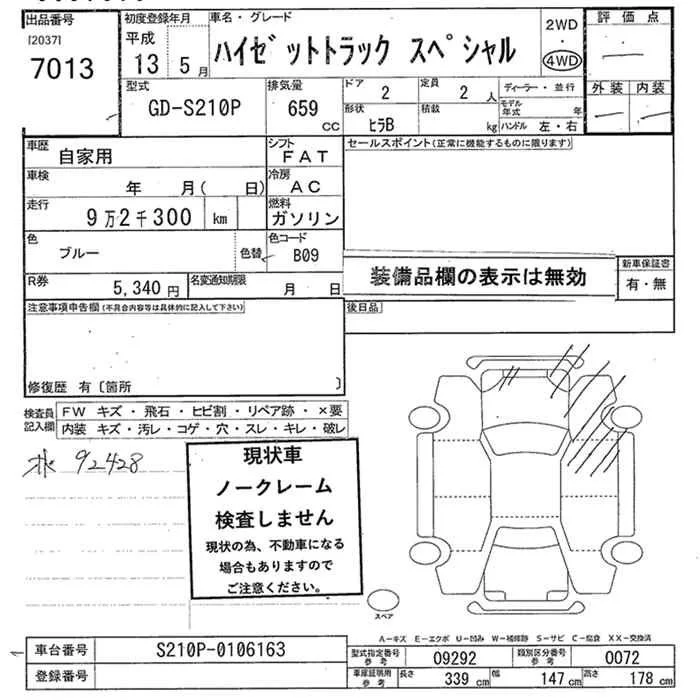 出品番号
[2037]
7013
初度登録年月
平成
13 5 月
車名・グレード
ハイゼットトラック スペシャル
2WD
4WD
評価点
外装 内装
型式
GD-S210P
排気量
659
CC
ドア
2
定員
2 人
形状
ヒラB
積載
kg
ディーラー・並行
モデル年式 年
ハンドル 左・右
車歴
自家用
シフト
FAT
車検
年 月( 日)
冷房
AC
走行
9万2千300 km
燃料
ガソリン
色
ブルー
色替
色コード
B09
R券
5,340 円
名変通知期限
月 日
セールスポイント(正常に機能するものに限ります)
装備品欄の表示は無効
新車保証書
有・無
注意事項申告欄(不具合内容等は具体的に記入して下さい)
修復歴 有〔箇所 〕
後日品
検査員記入欄
FW キズ・飛石・ヒビ割・リペア跡・×要
内装 キズ・汚レ・コゲ・穴・スレ・キレ・破レ
92428
現状車
ノークレーム
検査しません
現状の為、不動車になる
場合もありますので
ご注意ください。
スペア
A-キズ E-エクボ U-凹み W-補修跡 S-サビ C-腐食 XX-交換済
車台番号
S210P-0106163
登録番号
型式指定番号
参考
09292
類別区分番号
参考
0072
車庫証明用
参考
長さ 339 cm
幅 147 cm
高さ 178 cm